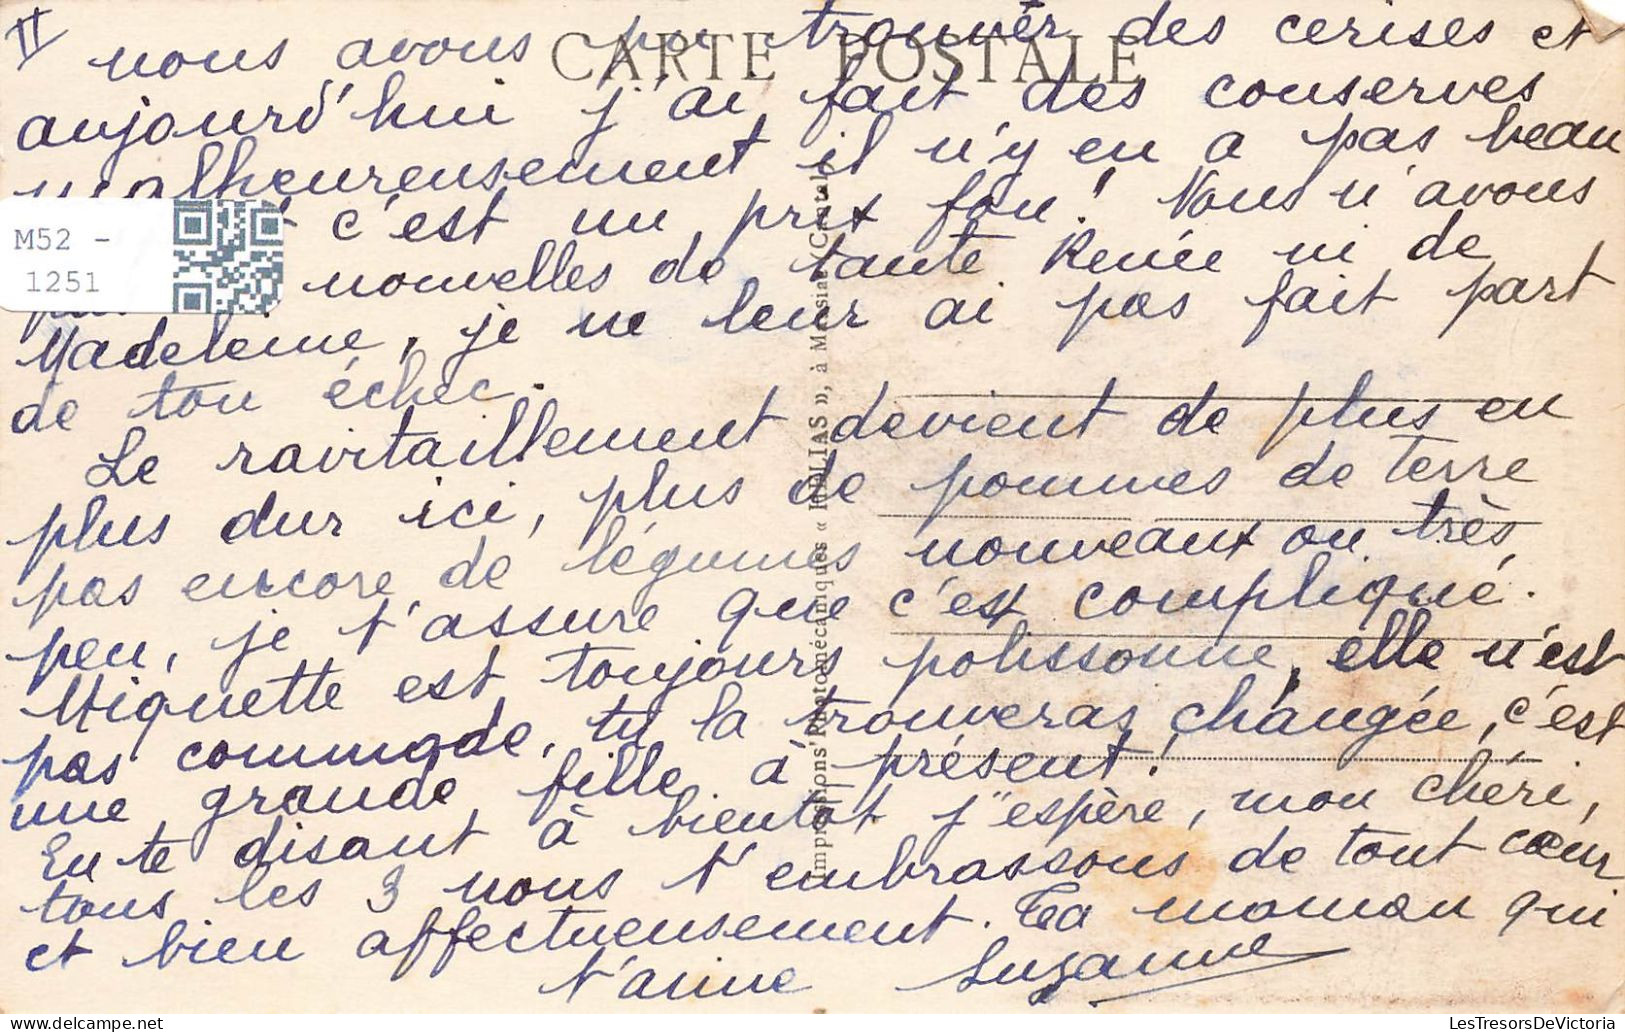 II
nous avons pu trouver des cerises et
CARTE POSTALE
aujourd'hui j'ai fait des conserves
malheureusement il n'y en a pas beau
c'est un prix fou! Nous n'avons
nouvelles de tante Renée ni de
Madeleine, je ne leur ai pas fait part
de ton échec.
Le ravitaillement devient de plus en
plus dur ici, plus de pommes de terre
pas encore de légumes nouveaux ou très
peu, je t'assure que c'est compliqué.
Miquette est toujours polissonne, elle n'est
pas commode, tu la trouveras changée, c'est
une grande fille à présent!
En te disant à bientôt j'espère, mon chéri,
tous les 3 nous t'embrassons de tout cœur
et bien affectueusement. Ta maman qui
t'aime Suzanne
M52 -
1251
LesTresorsDeVictoria